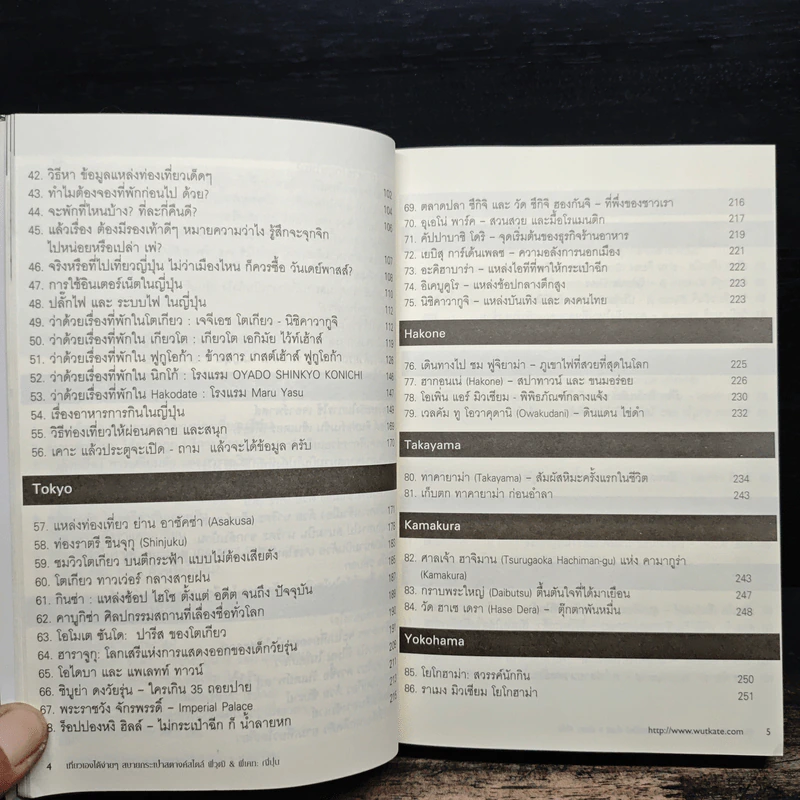 42. วิธีหา ข้อมูลแหล่งท่องเที่ยวเด็ดๆ
43. ทำไมต้องจองที่พักก่อนไป ด้วย? 102
44. จะพักที่ไหนบ้าง? ที่ละกี่คืนดี? 104
45. แล้วเรื่อง ต้องมีรองเท้าดีๆ หมายความว่าไง รู้สึกจะจุกจิก 106
ไปหน่อยหรือเปล่า เพ่?
46. จริงหรือที่ไปเที่ยวญี่ปุ่น ไม่ว่าเมืองไหน ก็ควรซื้อ วันเดย์พาสส์? 107
47. การใช้อินเตอร์เน็ตในญี่ปุ่น 108
48. ปลั๊กไฟ และ ระบบไฟ ในญี่ปุ่น 110
49. ว่าด้วยเรื่องที่พักในโตเกียว : เจจีเอช โตเกียว - นิชิคาวากูจิ 112
50. ว่าด้วยเรื่องที่พักใน เกียวโต : เกียวโต เอกิมัย ไว้ท์เฮ้าส์ 119
51. ว่าด้วยเรื่องที่พักใน ฟูกูโอก้า : ข้าวสาร เกสต์เฮ้าส์ ฟูกูโอก้า 126
52. ว่าด้วยเรื่องที่พักใน นิกโก้ : โรงแรม OYADO SHINKYO KONICHI
53. ว่าด้วยเรื่องที่พักใน Hakodate : โรงแรม Maru Yasu 146
54. เรื่องอาหารการกินในญี่ปุ่น
55. วิธีท่องเที่ยวให้ผ่อนคลาย และสนุก
56. เคาะ แล้วประตูจะเปิด - ถาม แล้วจะได้ข้อมูล ครับ 170
Tokyo
57. แหล่งท่องเที่ยว ย่าน อาซัคซ่า (Asakusa) 171
58. ท่องราตรี ชินจุกุ (Shinjuku)
59. ชมวิวโตเกียว บนตึกระฟ้า แบบไม่ต้องเสียตัง
60. โตเกียว ทาวเวอร์ กลางสายฝน
61. กินซ่า : แหล่งช้อป ไฮโซ ตั้งแต่ อดีต จนถึง ปัจจุบัน
62. คาบูกิซ่า ศิลปกรรมสถานที่เลื่องชื่อทั่วโลก
63. โอโมเต ซันโด: ปารีส ของโตเกียว
64. ฮาราจูกุ: โลกเสรีแห่งการแสดงออกของเด็กวัยรุ่น 209
65. โอไดบา และ แพเลทท์ ทาวน์ 211
66. ชิบูย่า ดงวัยรุ่น - ใครเกิน 35 ถอยปาย 213
67. พระราชวัง จักรพรรดิ์ - Imperial Palace 215
8. ร็อปปองหงิ ฮิลล์ - ไม่กระเป๋าฉีก ก็ น้ำลายหก
4 เที่ยวเองได้ง่ายๆ สบายกระเป๋าสตางค์สไตล์ พี่วุฒิ & พี่เคท: ญี่ปุ่น
69. ตลาดปลา ซึกิจิ และ วัด ซึกิจิ ฮองกันจิ - ที่พึ่งของชาวเรา 216
70. อุเอโน่ พาร์ค - สวนสวย และมื้อโรแมนติก 217
71. คัปปาบาชิ โดริ - จุดเริ่มต้นของธุรกิจร้านอาหาร 219
72. เยบิสุ การ์เด้นเพลซ - ความอลังการนอกเมือง 221
73. อะคิฮาบาร่า - แหล่งไอทีที่พาให้กระเป๋าฉีก 222
74. อิเคบูคูโร - แหล่งช้อปกลางตึกสูง 223
75. นิชิคาวากูจิ - แหล่งบันเทิง และ ดงคนไทย 223
Hakone
76. เดินทางไป ชม ฟูจิยาม่า - ภูเขาไฟที่สวยที่สุดในโลก 225
77. ฮากอนเน่ (Hakone) - สปาทาวน์ และ ขนมอร่อย 226
78. โอเพ่น แอร์ มิวเซียม - พิพิธภัณฑ์กลางแจ้ง 230
79. เวลคัม ทู โอวาคุดานิ (Owakudani) - ดินแดน ไข่ดำ 232
Takayama
80. ทาคายาม่า (Takayama) - สัมผัสหิมะครั้งแรกในชีวิต 234
81. เก็บตก ทาคายาม่า ก่อนอำลา 243
Kamakura
82. ศาลเจ้า ฮาจิมาน (Tsurugaoka Hachiman-gu) แห่ง คามากูร่า
(Kamakura) 243
83. กราบพระใหญ่ (Daibutsu) ตื้นตันใจที่ได้มาเยือน 247
84. วัด ฮาเซ เดรา (Hase Dera) - ตุ๊กตาพันหมื่น 248
Yokohama
85. โยโกฮาม่า: สวรรค์นักกิน 250
86. ราเมง มิวเซียม โยโกฮาม่า 251
http://www.wutkate.com 5